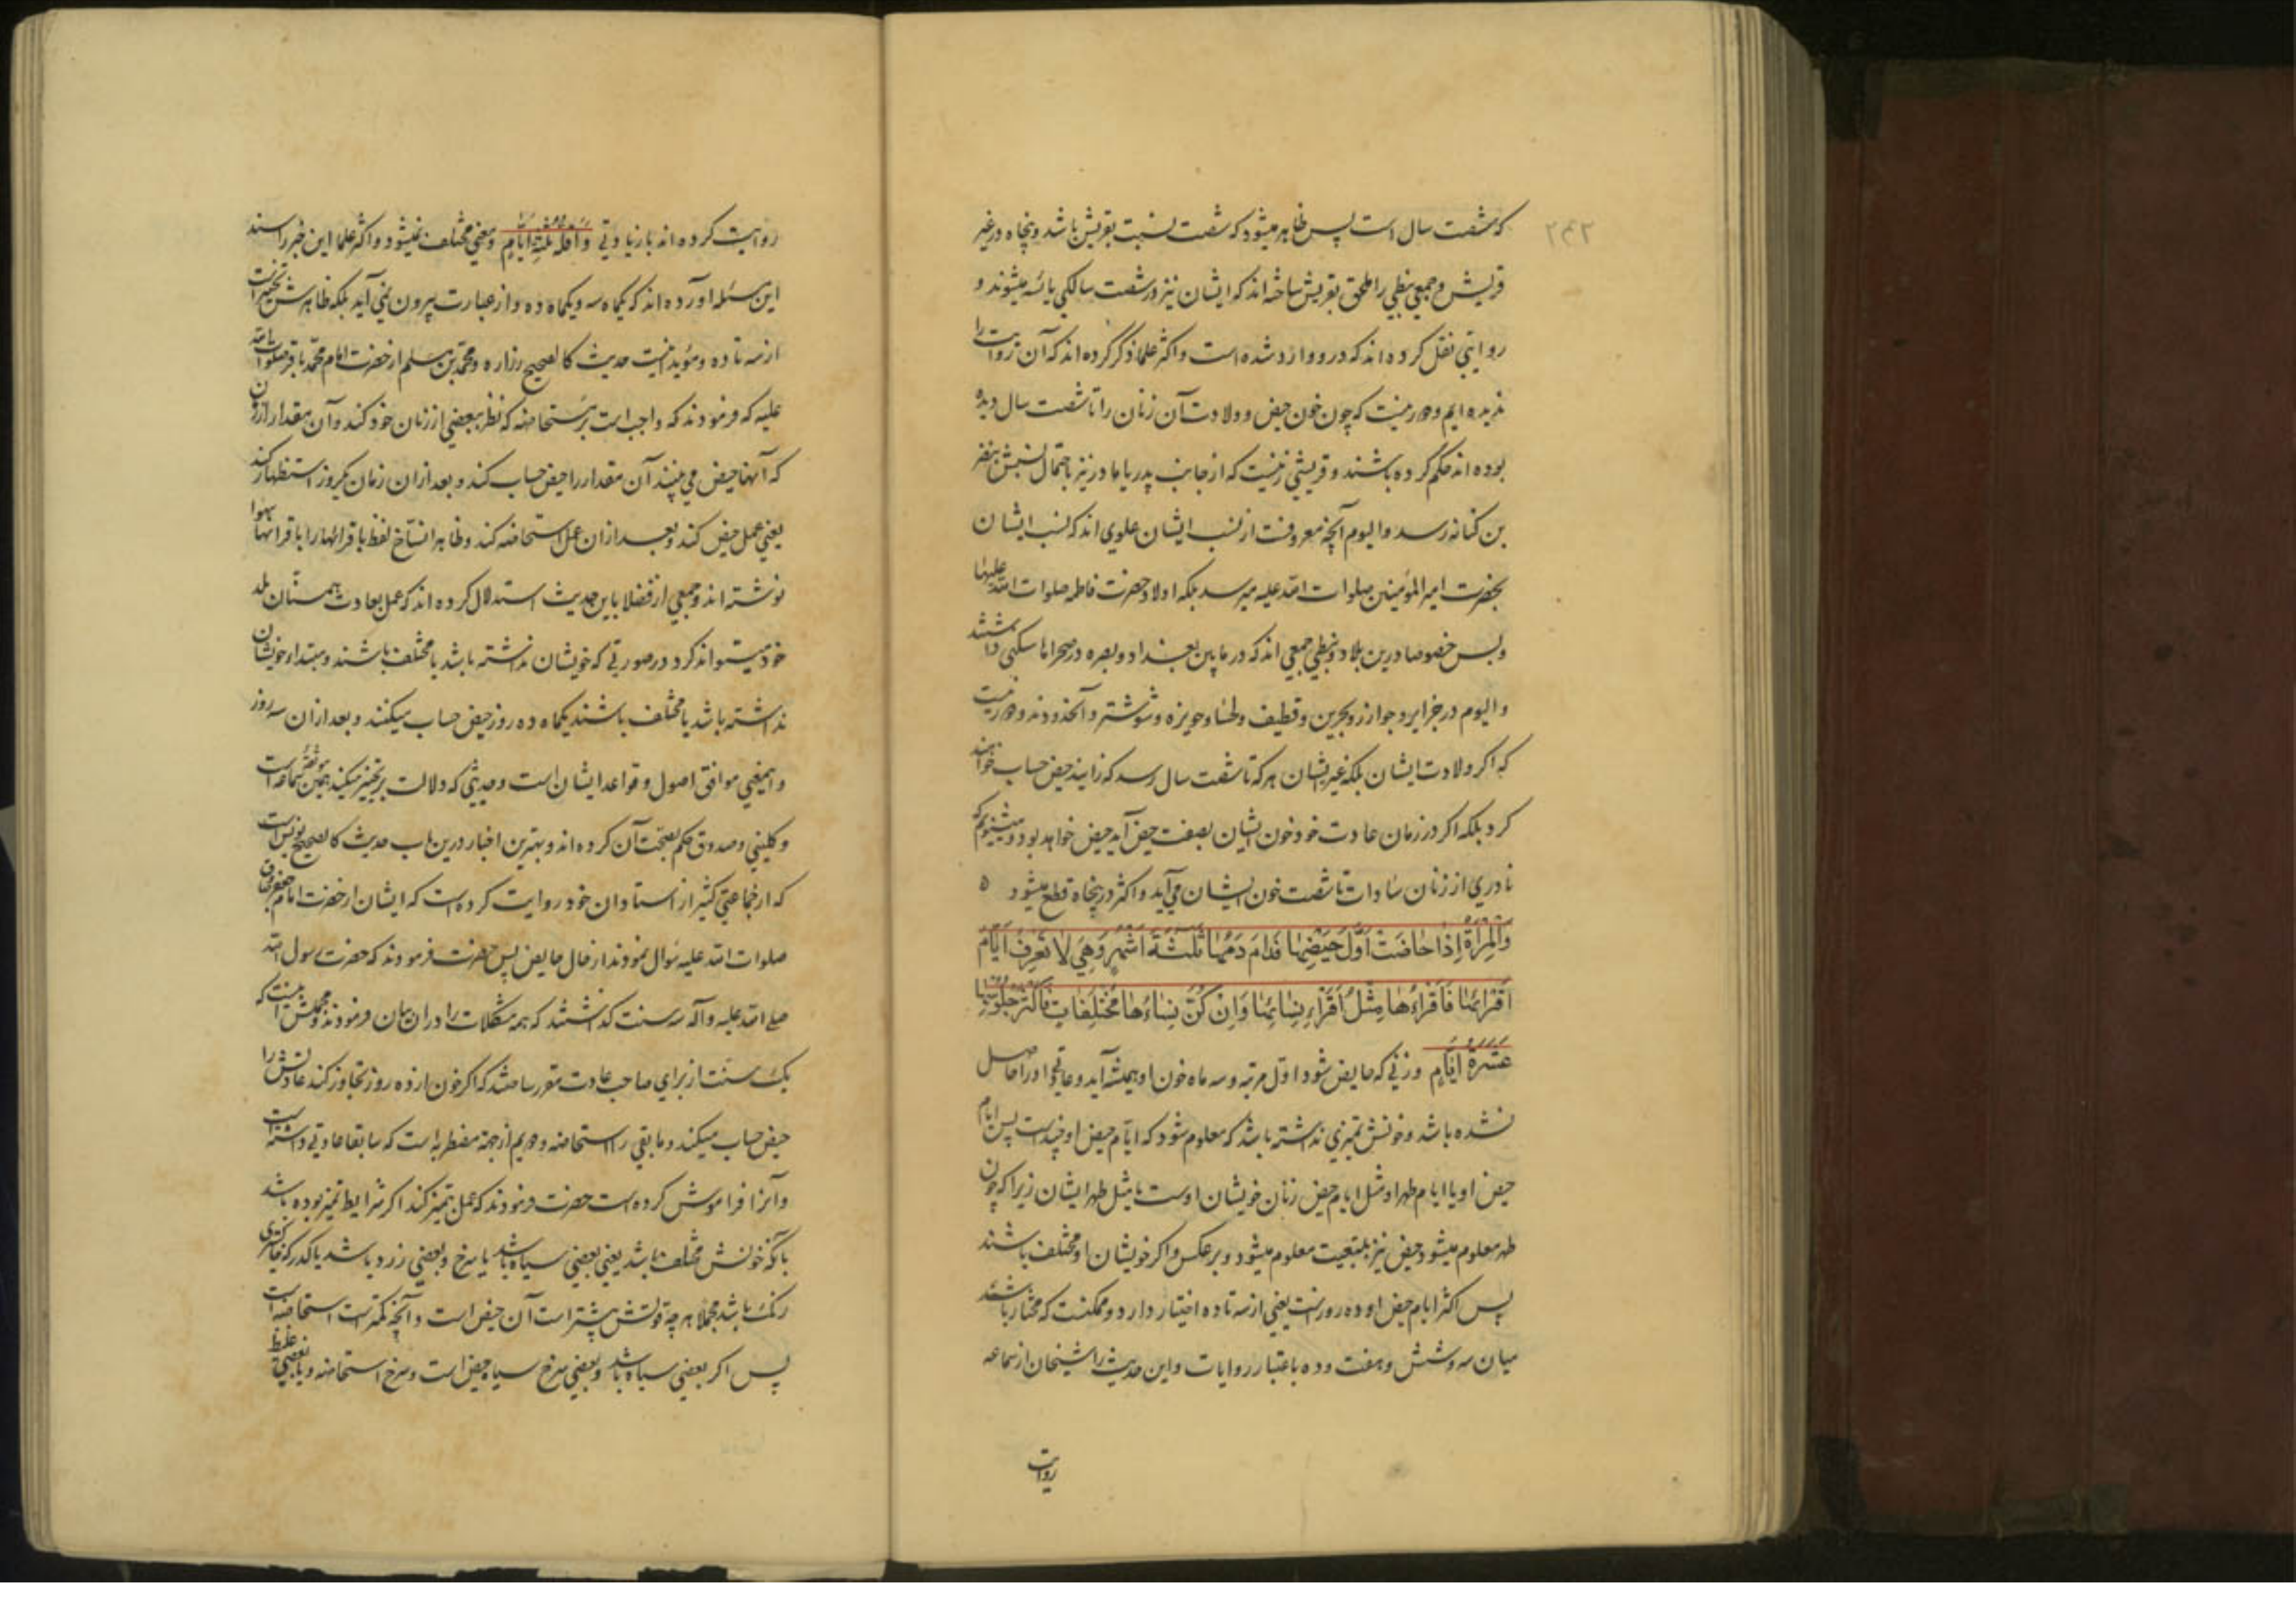 ۲۴۲
که شصت سال است پس ظاهر میشود که شصت نسبت بقریش باشد و پنجاه در غیر
قریش و جمعی نبطی را ملحق بقریش ساخته‌اند که ایشان نیز در شصت سالکی یائسه میشوند و
روایتی نقل کرده‌اند که درو وارد شده است و اکثر علما ذکر کرده‌اند که آن روایت را
ندیده‌ایم و دور نیست که چون خون حیض و ولادت آن زنان را تا شصت سال دیده
بوده‌اند حکم کرده باشند و قریشی زنیست که از جانب پدر یا مادر نیز باحتمال نسبش بنضر
بن کنانه رسد و الیوم آنچه معروفست از نسب ایشان علوی‌اند که نسب ایشان
بحضرت امیر المؤمنین صلوات الله علیه میرسد بلکه اولاد حضرت فاطمه صلوات الله علیها
و بس خصوصا درین بلاد و نبطی جمعی‌اند که در مابین بغداد و بصره در صحراها سکنی داشتند
و الیوم در جزایر و جوازر و بحرین و قطیف و لحسا و حویزه و شوشتر و آنحدودند و دور نیست
که اکر ولادت ایشان بلکه غیر ایشان هر که تا شصت سال رسد که زایند حیض حساب خواهند
کرد بلکه اکر در زمان عادت خود خون ایشان بصفت حیض آید حیض خواهد بود و میشنویم که
نادری از زنان سادات تا شصت خون ایشان می‌آید و اکثر در پنجاه قطع میشود ه
وَالْمَرْأَةُ إِذَا حَاضَتْ أَوَّلَ حَيْضِهَا فَدَامَ دَمُهَا ثَلٰثَةَ أَشْهُرٍ وَهِيَ لَا تَعْرِفُ أَيَّامَ
أَقْرَائِهَا فَأَقْرَاءُهَا مِثْلُ أَقْرَاءِ نِسَائِهَا وَإِنْ كُنَّ نِسَاءُهَا مُخْتَلِفَاتٍ فَأَكْثَرُ جُلُوسِهَا
عَشَرَةُ أَيَّامٍ و زنی که حایض شود اول مرتبه و سه ماه خون او همیشه آید و عادتی او را حاصل
نشده باشد و خونش تمیزی نداشته باشد که معلوم شود که ایام حیض او چند است پس ایام
حیض او یا ایام طهر او مثل ایام حیض زنان خویشان اوست یا مثل طهر ایشان زیرا که چون
طهر معلوم میشود حیض نیز بتبعیت معلوم میشود و بر عکس و اکر خویشان او مختلف باشند
پس اکثر ایام حیض او ده روزست یعنی از سه تا ده اختیار دارد و ممکنست که مختار باشند
میان سه و شش و هفت و ده باعتبار روایات و این حدیث را شیخان از سماعه
روایت
روایت کرده‌اند با زیادتی وَأَقَلُّهُ ثَلٰثَةُ أَيَّامٍ و معنی مختلف نمیشود و اکثر علما این خبر را سند
این مسئله آورده‌اند که یکماه سه و یکماه ده و از عبارت بیرون نمی‌آید بلکه ظاهرش تخییر است
از سه تا ده و مؤید اینست حدیث کالصحیح زراره و محمد بن مسلم از حضرت امام محمد باقر صلوات الله
علیه که فرمودند که واجب است بر مستحاضه که نظر ببعضی از زنان خود کند و آن مقدار از زمان
که آنها حیض می‌بینند آن مقدار را حیض حساب کند و بعد از ان زمان یکروز استظهار کند
یعنی عمل حیض کند و بعد از ان عمل استحاضه کند و ظاهرا نساخ لفظ باقرائها را باقرانها سهوا
نوشته‌اند و جمعی از فضلا باین حدیث استدلال کرده‌اند که عمل بعادت همسنان بلد
خود میتواند کرد در صورتی که خویشان نداشته باشد یا مختلف باشند و مبتدأه خویشان
نداشته باشد یا مختلف باشند یکماه ده روز حیض حساب میکنند و بعد از ان سه روز
و اینمعنی موافق اصول و قواعد ایشان است و حدیثی که دلالت بر تخییر میکند همین موثقه سماعه است
و کلینی و صدوق حکم بصحت آن کرده‌اند و بهترین اخبار درین باب حدیث کالصحیح یونس است
که از جماعتی کثیر از استادان خود روایت کرده است که ایشان از حضرت امام جعفر صادق
صلوات الله علیه سؤال نمودند از حال حایض پس حضرت فرمودند که حضرت رسول الله
صلی الله علیه و آله سه سنت کذاشتند که همه مشکلات را در ان بیان فرمودند و مجملش اینست که
یک سنت از برای صاحب عادت مقرر ساختند که اکر خون از ده روز تجاوز کند عادتش را
حیض حساب میکند و مابقی را استحاضه و دویم از جهة مضطربه است که سابقا عادتی داشته است
و آنرا فراموش کرده است حضرت فرمودند که عمل بتمیز کند اکر شرایط تمیز بوده باشد
بآنکه خونش مختلف باشد یعنی بعضی سیاه باشد یا سرخ و بعضی زرد باشد یا کدر که خاکستری
رنک باشد مجملا هر چه قوتش بیشتر است آن حیض است و آنچه کمتر است استحاضه است
پس اکر بعضی سیاه باشد و بعضی سرخ سیاه حیض است و سرخ استحاضه و یا بعضی غلیظ